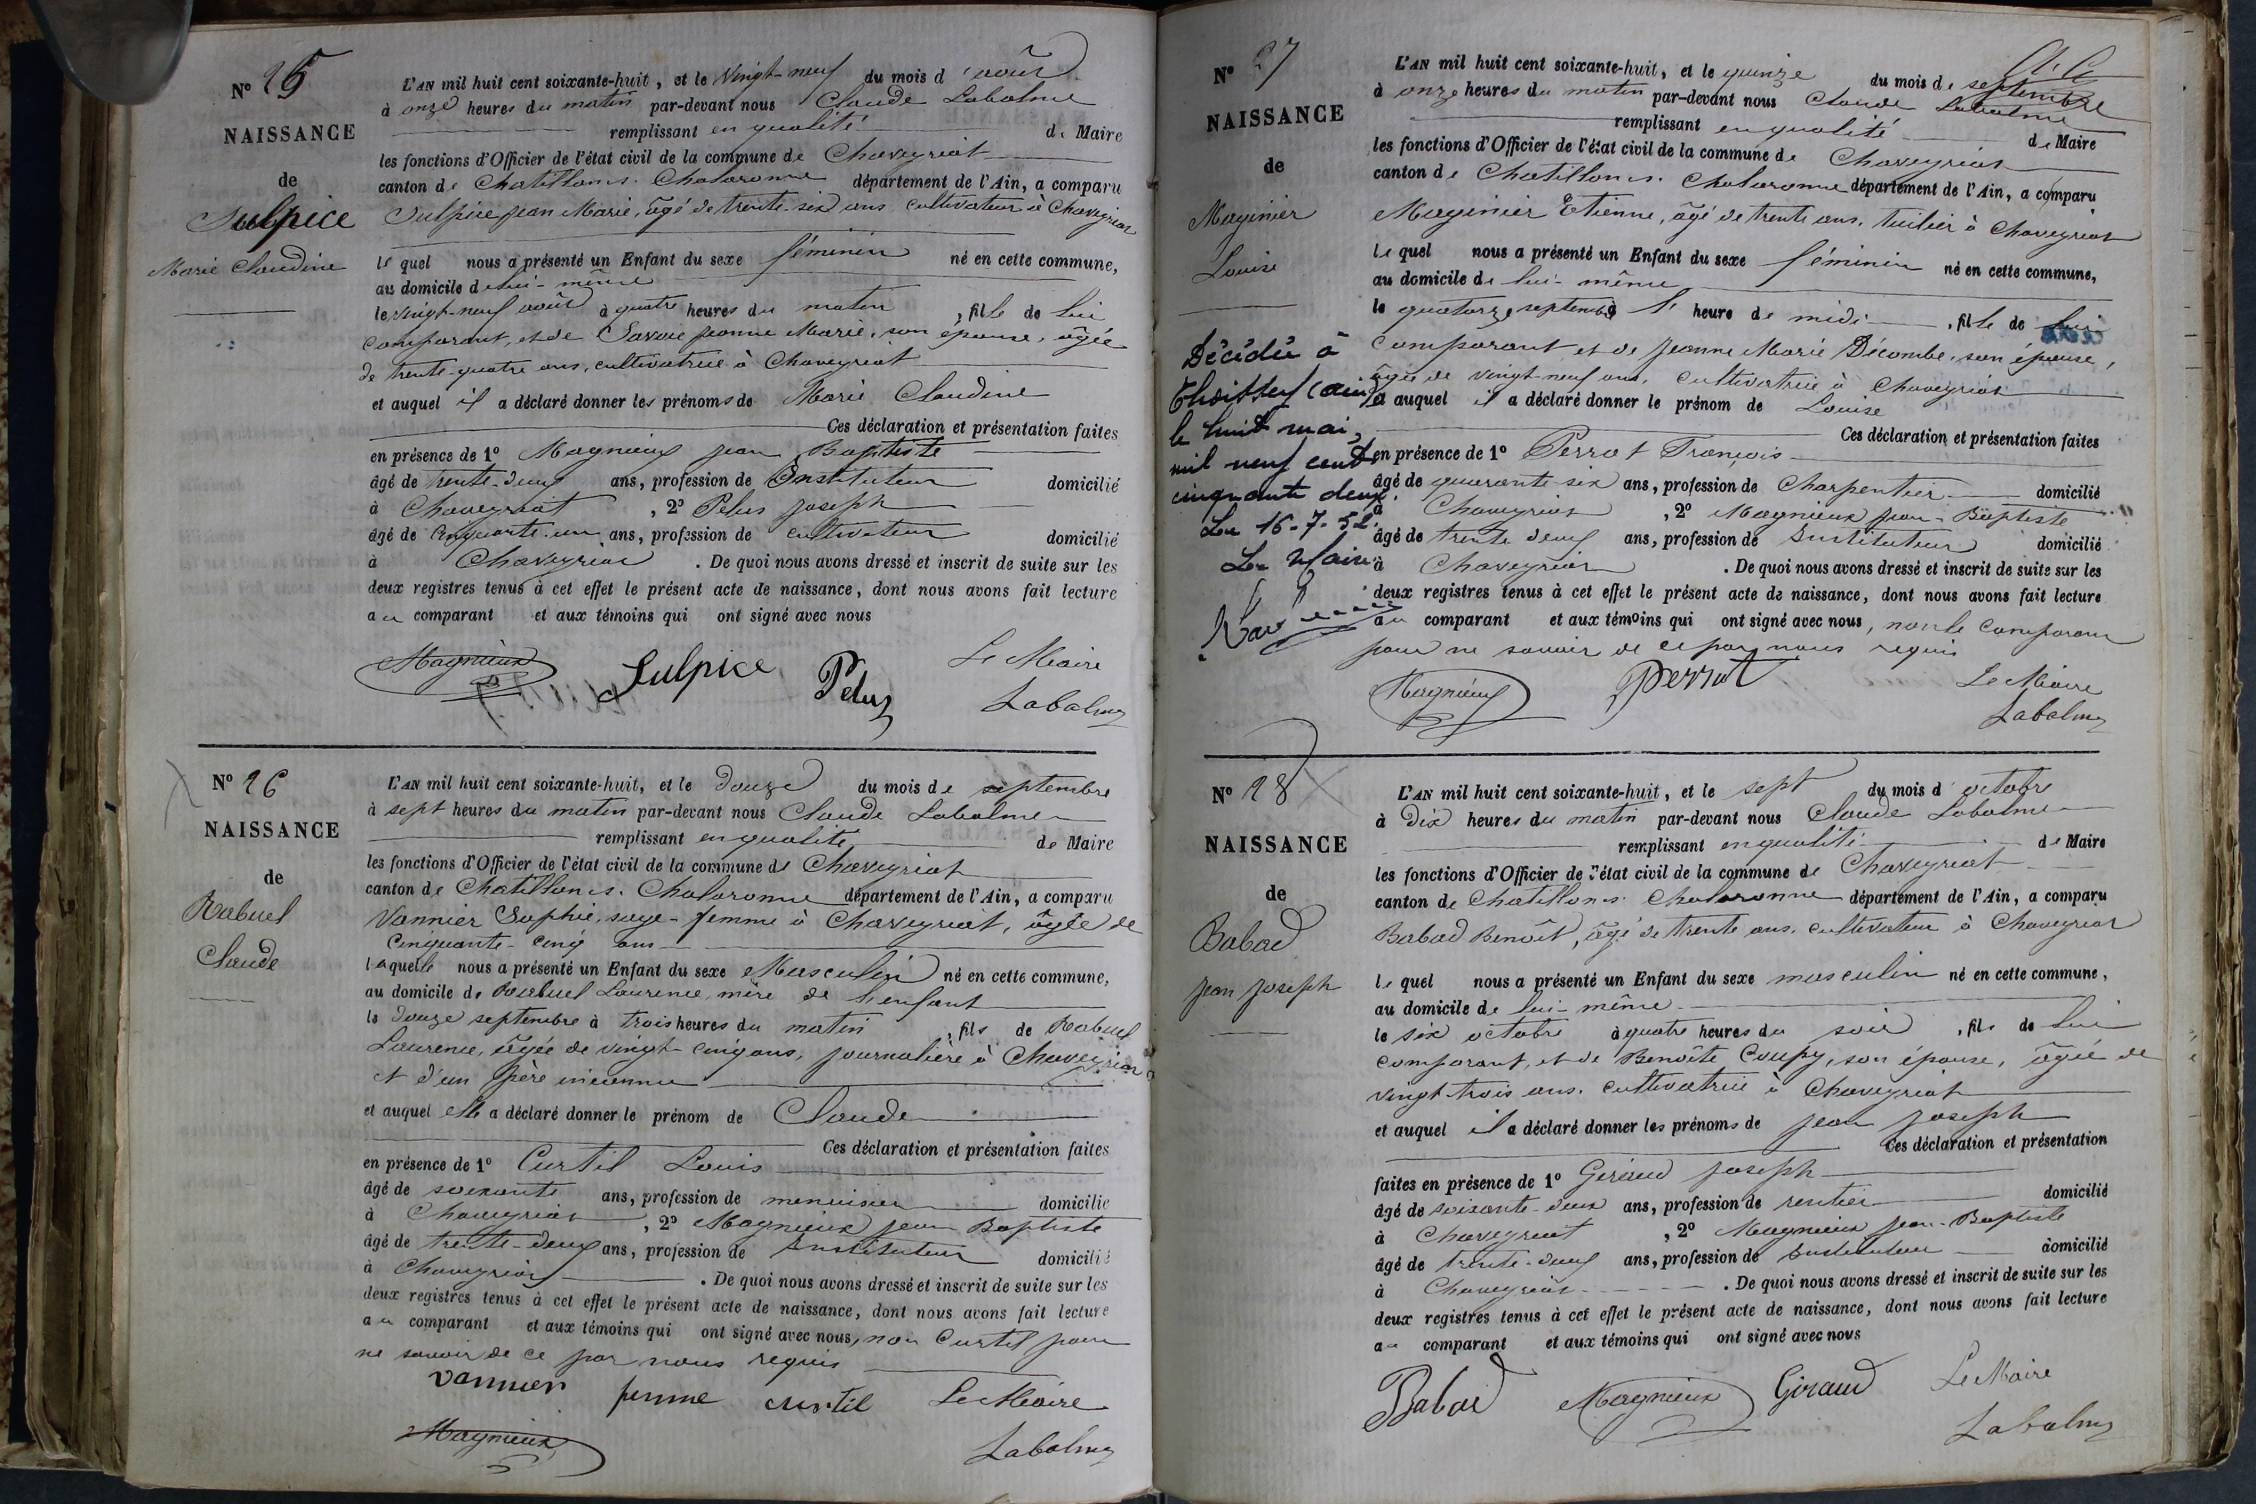 N° 25
NAISSANCE
de
Sulpice
Marie Claudine
L'AN mil huit cent soixante-huit, et le Vingt-neuf du mois d'août
à onze heures du matin par-devant nous Claude Labalme
remplissant en qualité de Maire
les fonctions d'Officier de l'état civil de la commune de Chaveyriat
canton de Chatillon s. Chalaronne département de l'Ain, a comparu
Sulpice Jean Marie, âgé de trente-six ans cultivateur à Chaveyriat
lequel nous a présenté un Enfant du sexe féminin né en cette commune,
au domicile de lui-même
le vingt-neuf août à quatre heures du matin, fille de lui
comparant, et de Savoie Jeanne Marie, son épouse, âgée
de trente-quatre ans, cultivatrice à Chaveyriat
et auquel il a déclaré donner les prénoms de Marie Claudine
Ces déclaration et présentation faites
en présence de 1° Magnieux Jean Baptiste
âgé de trente-deux ans, profession de Instituteur domicilié
à Chaveyriat, 2° Pelus Joseph
âgé de cinquante-un ans, profession de cultivateur domicilié
à Chaveyriat. De quoi nous avons dressé et inscrit de suite sur les
deux registres tenus à cet effet le présent acte de naissance, dont nous avons fait lecture
au comparant et aux témoins qui ont signé avec nous
Magnieux Sulpice Pelus Le Maire
Labalme
N° 26
NAISSANCE
de
Rabuel
Claude
L'AN mil huit cent soixante-huit, et le douze du mois de septembre
à sept heures du matin par-devant nous Claude Labalme
remplissant en qualité de Maire
les fonctions d'Officier de l'état civil de la commune de Chaveyriat
canton de Chatillon s. Chalaronne département de l'Ain, a comparu
Vannier Sophie, sage-femme à Chaveyriat, âgée de
cinquante-cinq ans
laquelle nous a présenté un Enfant du sexe Masculin né en cette commune,
au domicile de Rabuel Laurence, mère de l'enfant
le douze septembre à trois heures du matin, fils de Rabuel
Laurence, âgée de vingt-cinq ans, journalière à Chaveyriat
et d'un père inconnu
et auquel elle a déclaré donner le prénom de Claude
Ces déclaration et présentation faites
en présence de 1° Curtil Louis
âgé de soixante ans, profession de menuisier domicilié
à Chaveyriat, 2° Magnieux Jean Baptiste
âgé de trente-deux ans, profession de Instituteur domicilié
à Chaveyriat. De quoi nous avons dressé et inscrit de suite sur les
deux registres tenus à cet effet le présent acte de naissance, dont nous avons fait lecture
au comparant et aux témoins qui ont signé avec nous, non Curtil pour
ne savoir de ce par nous requis
vannier femme curtil Le Maire
Magnieux Labalme
N° 27
NAISSANCE
de
Maginier
Louise
Décédée à
Thoissey (ain)
le huit mai,
mil neuf cent
cinquante deux.
Le 16-7-52.
Le Maire
L'AN mil huit cent soixante-huit, et le quinze du mois de septembre
à onze heures du matin par-devant nous Claude Labalme
remplissant en qualité de Maire
les fonctions d'Officier de l'état civil de la commune de Chaveyriat
canton de Chatillon s. Chalaronne département de l'Ain, a comparu
Maginier Etienne, âgé de trente ans, tuilier à Chaveyriat
lequel nous a présenté un Enfant du sexe féminin né en cette commune,
au domicile de lui-même
le quatorze septembre à l' heure de midi, fille de lui
comparant, et de Jeanne Marie Décombe, son épouse,
âgée de vingt-neuf ans, cultivatrice à Chaveyriat
et auquel il a déclaré donner le prénom de Louise
Ces déclaration et présentation faites
en présence de 1° Perrat François
âgé de quarante-six ans, profession de Charpentier domicilié
à Chaveyriat, 2° Magnieux Jean-Baptiste
âgé de trente deux ans, profession de Instituteur domicilié
à Chaveyriat. De quoi nous avons dressé et inscrit de suite sur les
deux registres tenus à cet effet le présent acte de naissance, dont nous avons fait lecture
au comparant et aux témoins qui ont signé avec nous, non le comparant
pour ne savoir de ce par nous requis
Magnieux Perrat Le Maire
Labalme
N° 28
NAISSANCE
de
Babad
Jean Joseph
L'AN mil huit cent soixante-huit, et le sept du mois d'octobre
à dix heures du matin par-devant nous Claude Labalme
remplissant en qualité de Maire
les fonctions d'Officier de l'état civil de la commune de Chaveyriat
canton de Chatillon s. Chalaronne département de l'Ain, a comparu
Babad Benoît, âgé de trente ans, cultivateur à Chaveyriat
lequel nous a présenté un Enfant du sexe masculin né en cette commune,
au domicile de lui-même
le six octobre à quatre heures du soir, fils de lui
comparant, et de Benoîte Coupy, son épouse, âgée de
vingt-trois ans, cultivatrice à Chaveyriat
et auquel il a déclaré donner les prénoms de Jean Joseph
Ces déclaration et présentation
faites en présence de 1° Géraud Joseph
âgé de soixante-deux ans, profession de rentier domicilié
à Chaveyriat, 2° Magnieux Jean-Baptiste
âgé de trente-deux ans, profession de Instituteur domicilié
à Chaveyriat. De quoi nous avons dressé et inscrit de suite sur les
deux registres tenus à cet effet le présent acte de naissance, dont nous avons fait lecture
au comparant et aux témoins qui ont signé avec nous
Babad Magnieux Giraud Le Maire
Labalme